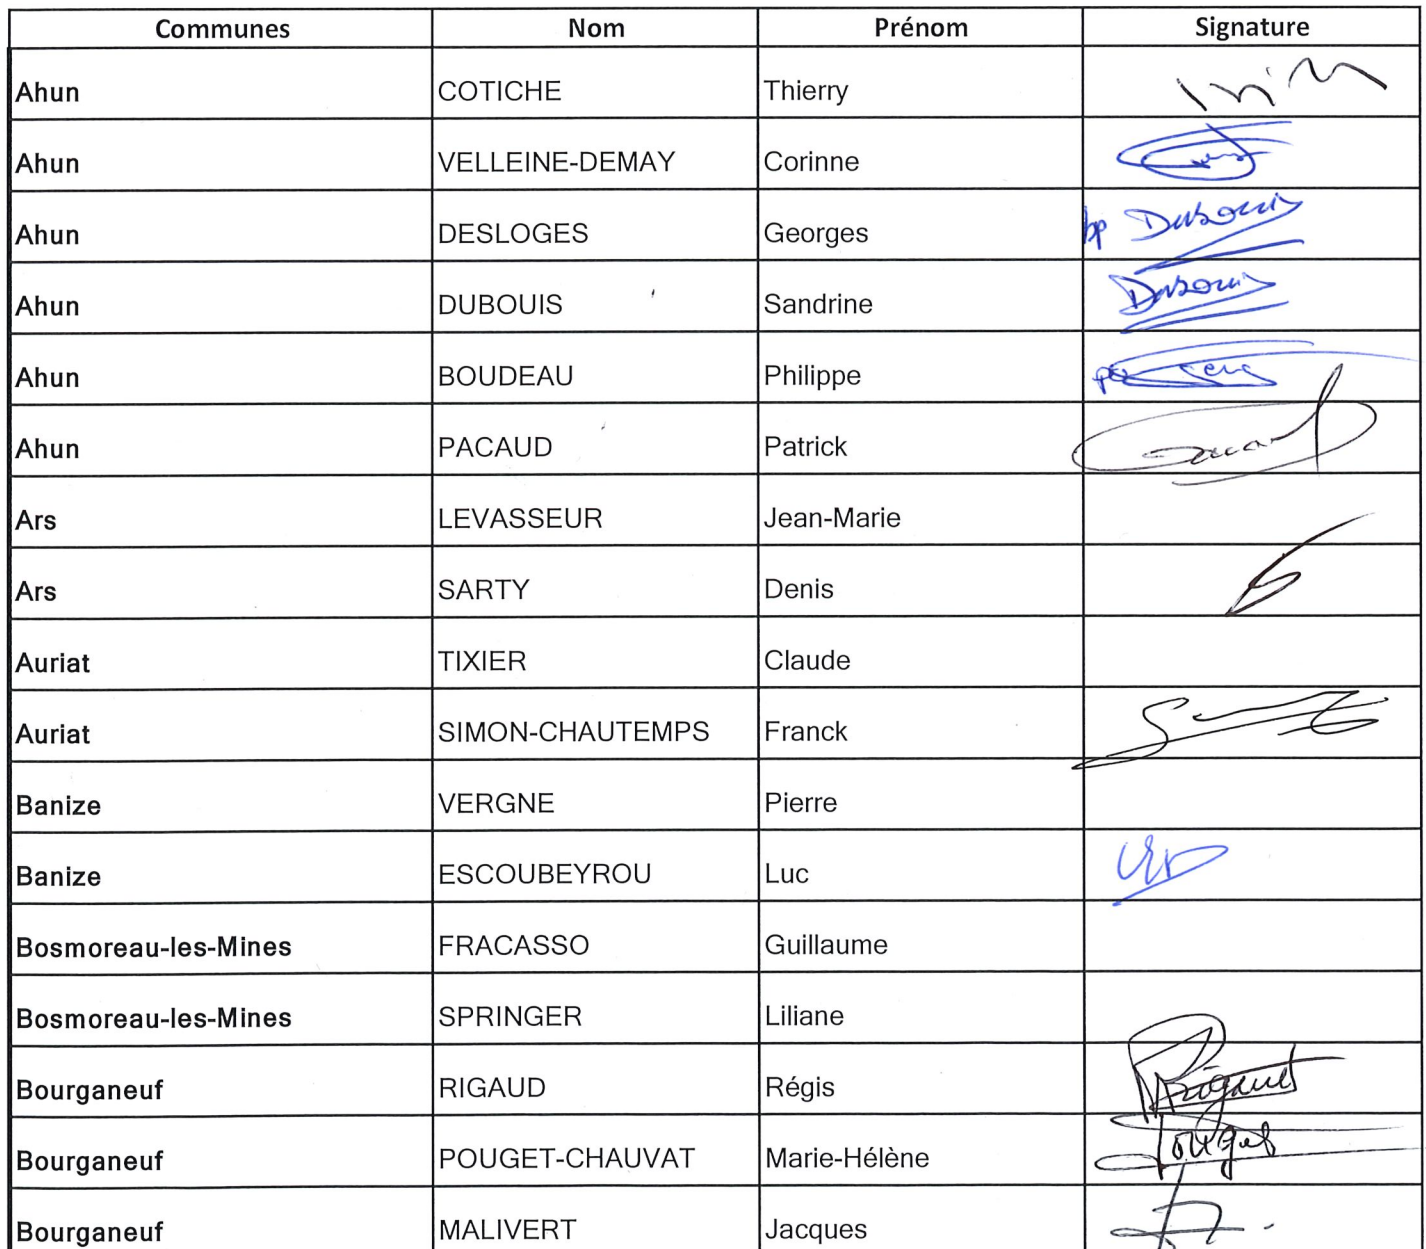 Communes Nom Prénom Signature
Ahun COTICHE Thierry
Ahun VELLEINE-DEMAY Corinne
Ahun DESLOGES Georges bp Dubouis
Ahun DUBOUIS Sandrine Dubouis
Ahun BOUDEAU Philippe
Ahun PACAUD Patrick
Ars LEVASSEUR Jean-Marie
Ars SARTY Denis
Auriat TIXIER Claude
Auriat SIMON-CHAUTEMPS Franck
Banize VERGNE Pierre
Banize ESCOUBEYROU Luc
Bosmoreau-les-Mines FRACASSO Guillaume
Bosmoreau-les-Mines SPRINGER Liliane
Bourganeuf RIGAUD Régis Rigaud
Bourganeuf POUGET-CHAUVAT Marie-Hélène Pouget
Bourganeuf MALIVERT Jacques